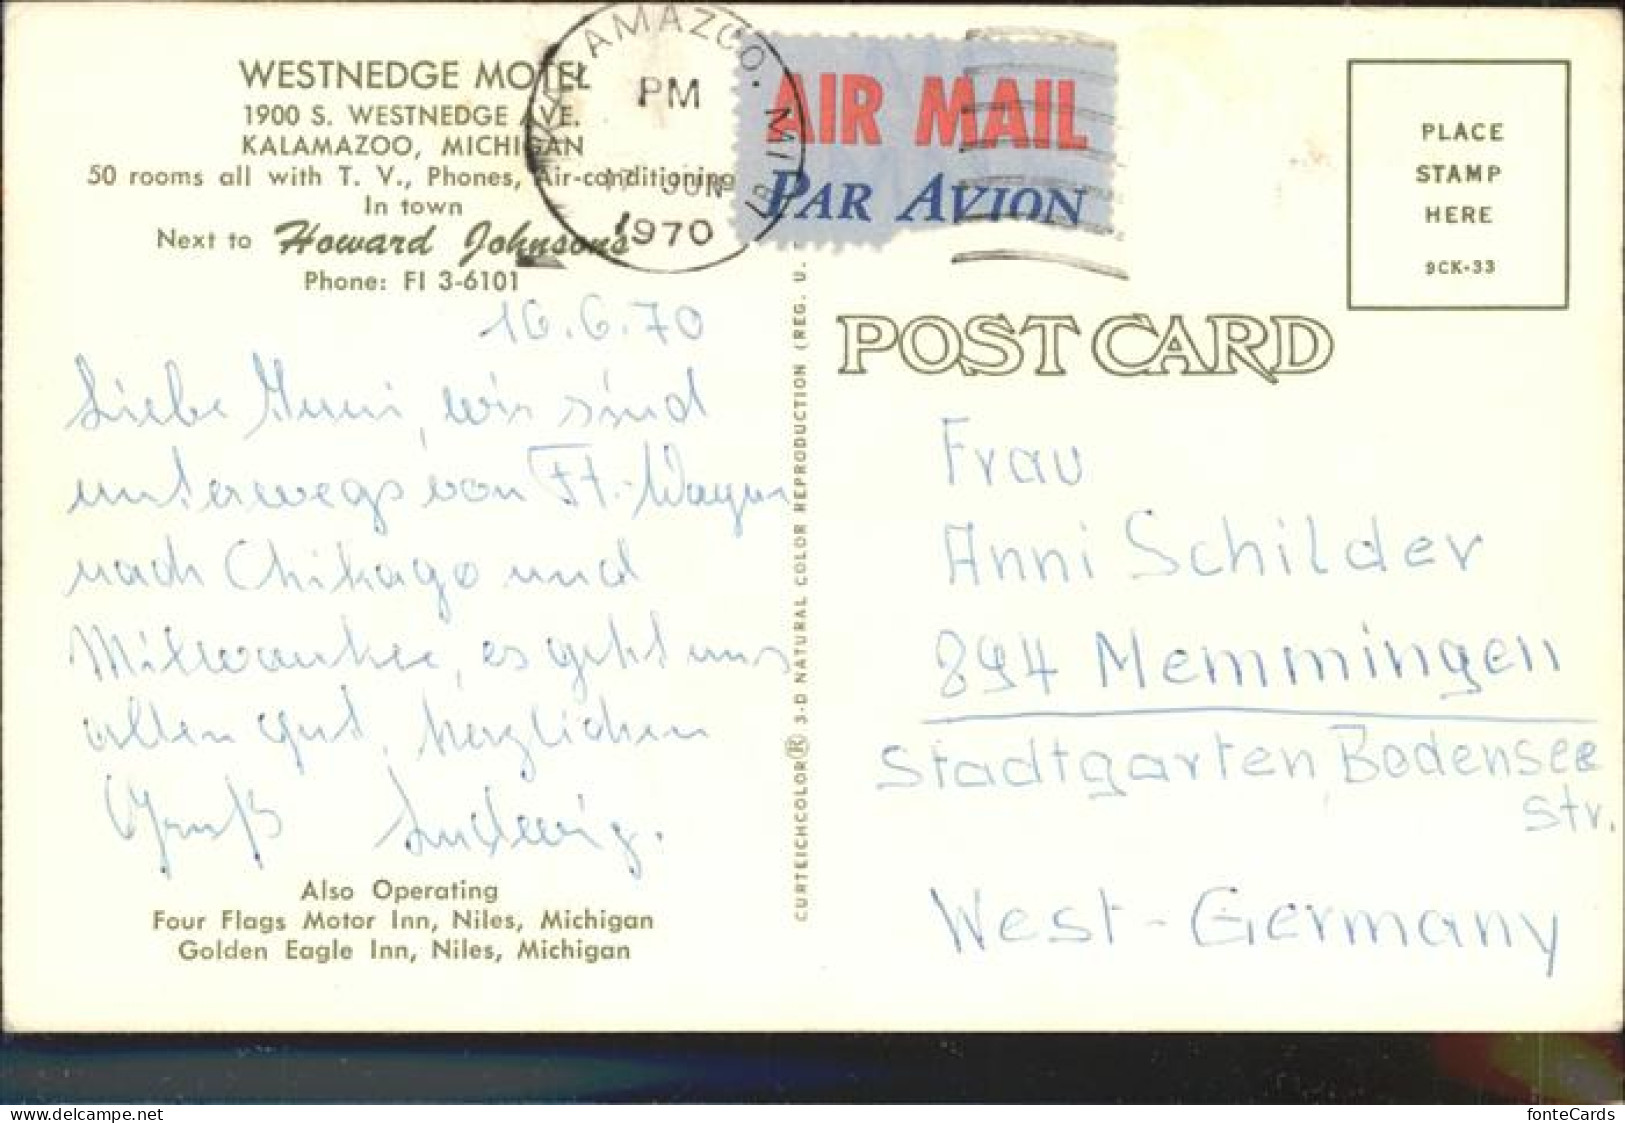 WESTNEDGE MOTEL
1900 S. WESTNEDGE AVE.
KALAMAZOO, MICHIGAN
50 rooms all with T. V., Phones, Air-conditioning
In town
Next to Howard Johnson's
Phone: FI 3-6101
KALAMAZOO. MI
PM
17 JUN
1970
AIR MAIL
PAR AVION
PLACE
STAMP
HERE
9CK-33
POST CARD
16.6.70
Liebe Anni, wir sind
unterwegs von Ft. Wayne
nach Chikago und
Milwaukee, es geht uns
allen gut, herzlichen
Gruß Ludwig.
Also Operating
Four Flags Motor Inn, Niles, Michigan
Golden Eagle Inn, Niles, Michigan
CURTEICHCOLOR® 3-D NATURAL COLOR REPRODUCTION (REG. U.
Frau
Anni Schilder
894 Memmingen
Stadtgarten, Bodensee
str.
West-Germany
www.delcampe.net
fonteCards